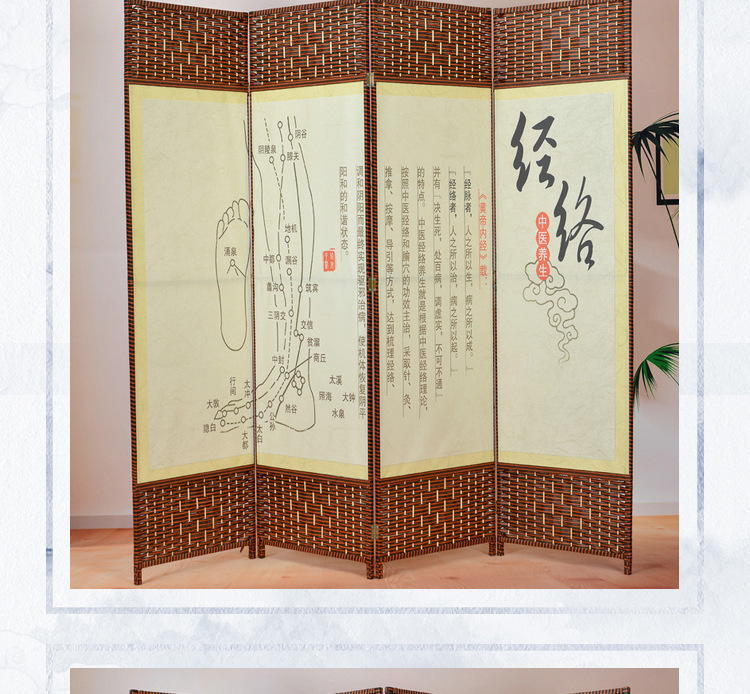 经络
中医养生
《黄帝内经》载：
『经脉者，人之所以生，病之所以成。』
『经络者，人之所以治，病之所以起。』
并有『决生死，处百病，调虚实，不可不通』
的特点。中医经络养生就是根据中医经络理论，
按照中医经络和腧穴的功效主治，采取针、灸、
推拿、按摩、导引等方式，达到梳理经络、
调和阴阳而最终实现驱邪治病，使机体恢复阴平
阳和的和谐状态。
阴谷
阴陵泉
膝关
地机
涌泉
中都
漏谷
蠡沟
筑宾
三阴交
交信
复溜
中封
商丘
行间
太冲
太溪
照海
大钟
水泉
大敦
隐白
大都
太白
公孙
然谷